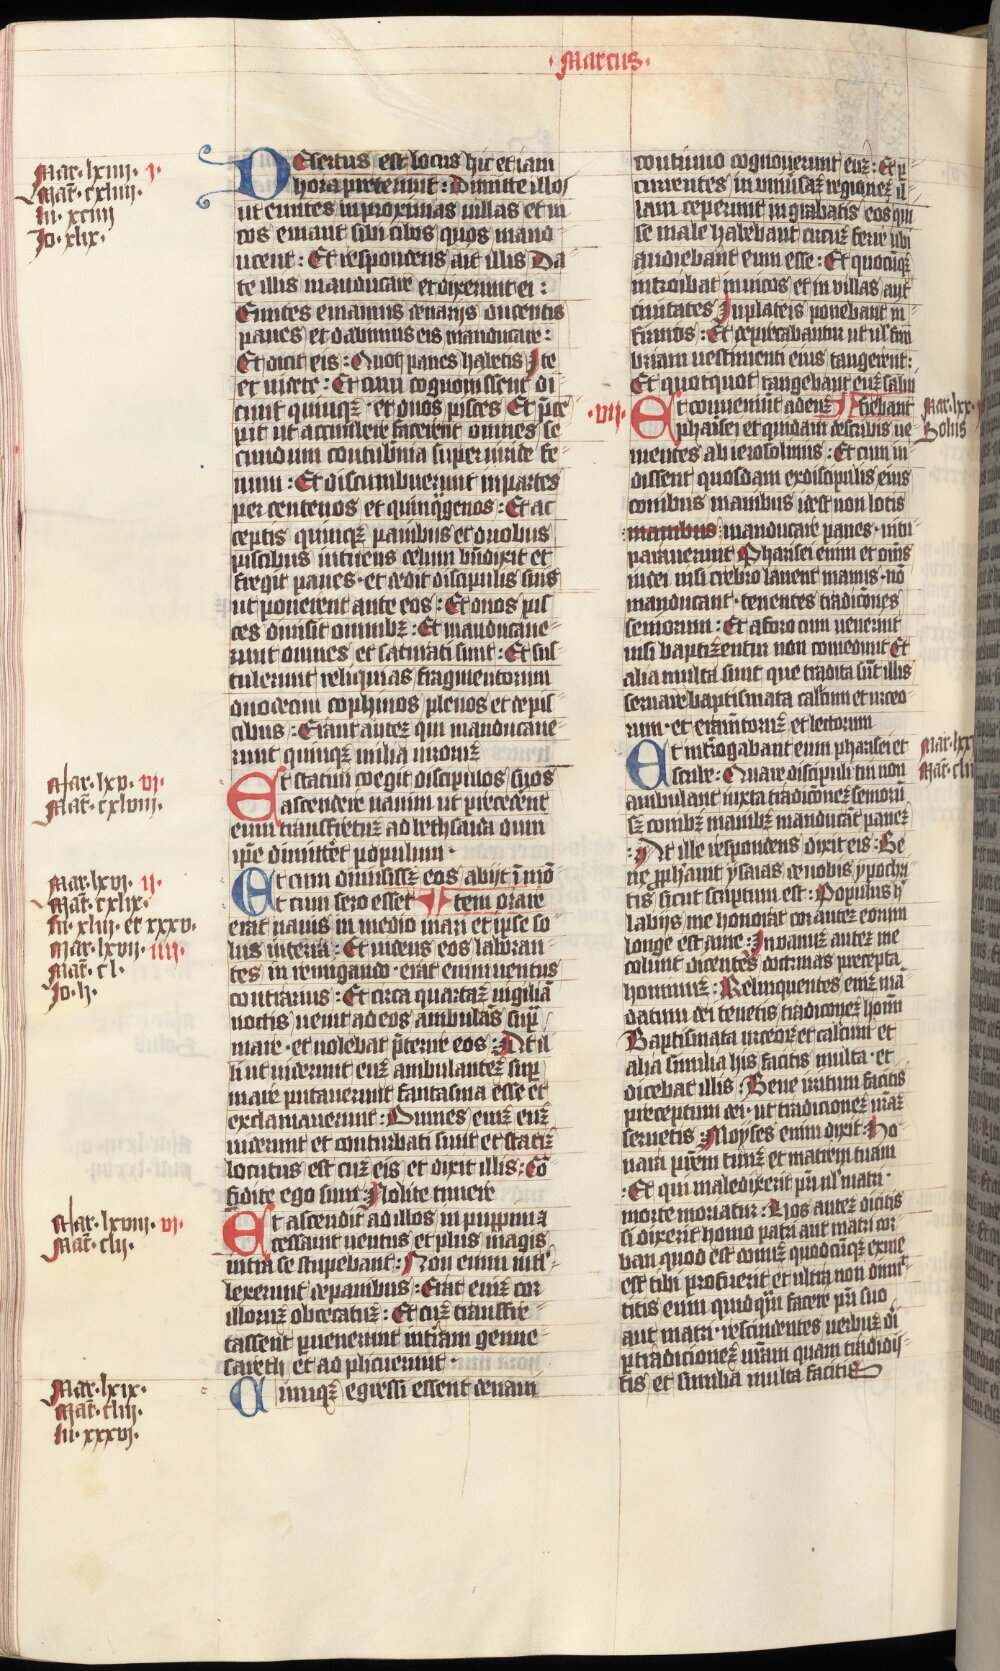 · Marcus ·
Mar · lxiiii · i ·
Mat͛ · cxlviii ·
lu · xciii
Jo · xlix ·
DEsertus est locus hic et iam
hora preteriuit : Dimitte illos
ut euntes in proximas uillas et ui
cos emant sibi cibos quos mand
ucent : Et respondens ait illis Da
te illis manducare et dixerunt ei :
Euntes emamus denarijs ducentis
panes et dabimus eis manducare :
Et dicit eis : Quot panes habetis Ite
et uidete : Et cum cognouissent di
cunt quinqȝ · et duos pisces Et p̄ce
pit ut accumbere facerent omnes se
cundum contubnia super uiride fe
num : Et discumbuerunt in partes
per centenos et quinqgenos : Et ac
ceptis quinqȝ panibus et duobus
piscibus intuens celum bn̄dixit et
fregit panes · et dedit discipulis suis
ut ponerent ante eos : Et duos pis
ces diuisit omnibȝ : Et manducaue
runt omnes et saturati sunt : Et sus
tulerunt reliquias fragmentorum
duodecim cophinos plenos et de pis
cibus : Erant auteȝ qui manducaue
runt quinqȝ milia uiroruȝ
Mar · lxv · vi ·
Mat͛ · cxlviii ·
Et statim coegit discipulos suos
ascendere nauim ut precederent
eum transfretuȝ ad bethsaida dum
ip̄e dimittet populum ·
Mar · lxvi · ii ·
Mat͛ · cxlix ·
lu · xliii · et xxxv ·
Mar · lxvii · iiii ·
Mat͛ · cl ·
Jo · li ·
Et cum dimisissȝ eos abijt ī mō
Et cum sero esset tem orare
erat nauis in medio mari et ipse so
lus in terra : Et uidens eos laboran
tes in remigando · erat enim uentus
contrarius : Et circa quartaȝ uigiliā
noctis uenit ad eos ambulās sup̄
mare · et uolebat p̄terire eos : At il
li ut uiderunt euȝ ambulanteȝ sup̄
mare putauerunt fantasma esse et
exclamauerunt : Omnes enī euȝ
uiderunt et conturbati sunt et statiȝ
locutus est cuȝ eis et dixit illis : Cō
fidite ego sum : Nolite timere
Mar · lxviii · vi ·
Mat͛ · clii ·
Et ascendit ad illos in puppim ⁊
cessauit uentus et plus magis
intra se stupebant : Non enim intel
lexerunt de panibus : Erat enī cor
illoruȝ obcecatuȝ : Et cuȝ transfre
tassent puenerunt in t̄ram genne
sareth et ad plicuerunt ·
Mar · lxix ·
Mat͛ · cliii ·
lu · xxxvi ·
Cumqȝ egressi essent de naui
continuo cognouerunt euȝ : Et p̄
currentes in uniusaȝ regioneȝ il
lam ceperunt in grabatis eos qui
se male habebant circuȝ ferre ubi
audiebant eum esse : Et quocuqȝ
introibat in uicos et in uillas aut
ciuitates In plateis ponebant in
firmos : Et deprecabantur ut ul̄ fim
briam uestimenti eius tangerent :
Et quotquot tangebant euȝ salui
· vii ·
Mar · lxx ·
Solus
Et conueniūt ad euȝ fiebant
pharisei et quidam de scribis ue
nientes ab ierosolimis : Et cum ui
dissent quosdam ex discipulis eius
comibus manibus id est non lotis
manibus manducare panes · uitu
perauerunt Pharisei enim et om̄s
iudei nisi crebro lauent manus · nō
manducant · tenentes tradicōnes
seniorum : Et a foro cum uenerint
nisi baptizentur non comedunt Et
alia multa sunt que tradita sūt illis
seruare baptismata calicum et urceo
rum · et eramētoruȝ et lectorum
Mar · lxx
Mat͛ · cl
Et introgabant eum pharisei et
scribe : Quare discipuli tui non
ambulant iuxta tradicōneȝ senioru̅
sȝ comibȝ manibȝ manducāt paneȝ
: At ille respondens dixit eis : Be
ne p̄phauit ysaias de uobis ypocri
tis sicut scriptum est : Populus h̄
labijs me honorat cor autez eorum
longe est a me : In uanuȝ autez me
colunt docentes doctrinas precepta
hominuȝ : Relinquentes enī mā
datum dei tenetis tradicioneȝ homī
Baptismata urceoȝ et calicum et
alia similia his facitis multa · et
dicebat illis : Bene irritum facitis
preceptum dei · ut tradicioneȝ ur̄aȝ
seruetis : Moyses enim dixit : Ho
nora pr̄em tuuȝ et matrem tuam
: Et qui maledixerit pr̄i ul̄ matri ·
morte moriatur : Uos autez dicitis
si dixerit homo patri aut matri cor
ban quod est donuȝ quodcūqȝ ex me
est tibi profuerit et ultra non dimit
titis eum quidqm̄ facere pr̄i suo
aut matri · rescindentes uerbuȝ di
p tradicioneȝ ur̄am quam tradidis
tis et similia multa facitis